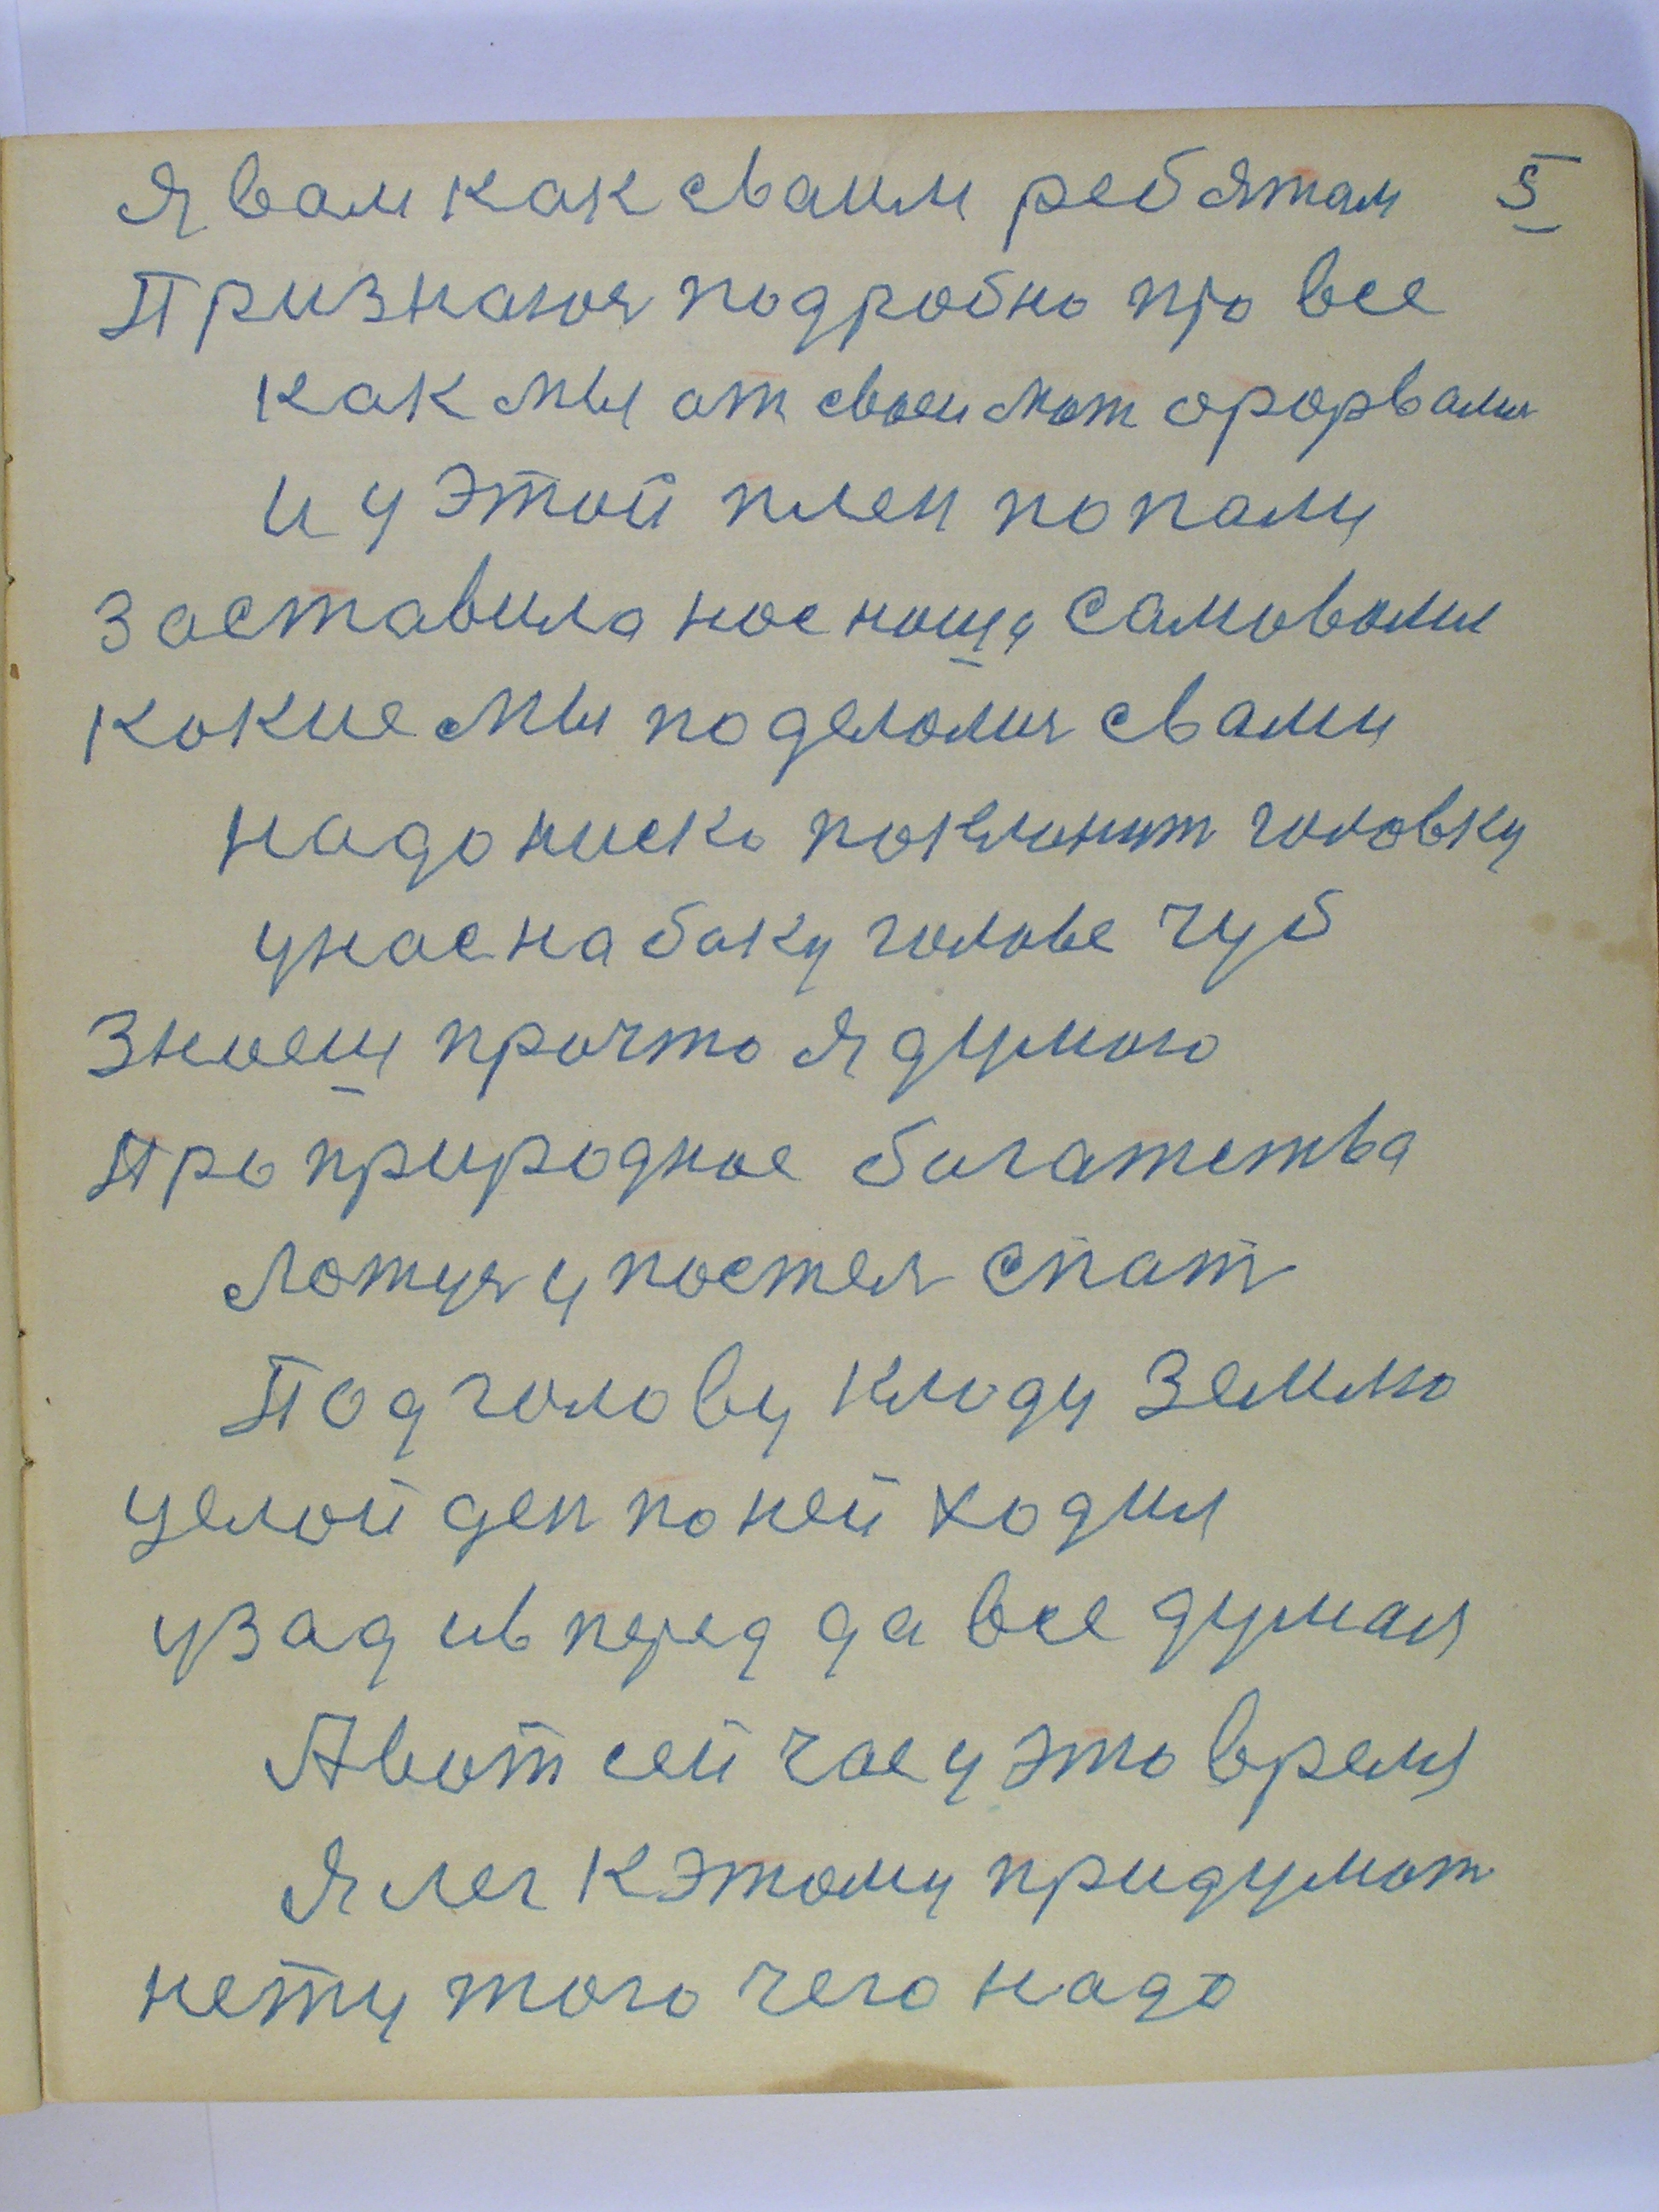 Я вам как сваим ребятам 5
Признаюя подробно про все
как мы от своеи мат орорвалия
и у этой плен попали
заставила нас наша самоволия
какие мы поделалия свами
надо ниско поклонит головку
унас на баку голове чуб
Знаеш прочто я думаю
Про природное богатства
ложуя у постеля спат
Под голову кладу землю
целой ден по ней ходил
узад ивперед да все думал
А вот сей час у это время
я лег кэтому придумат
нету того чего надо